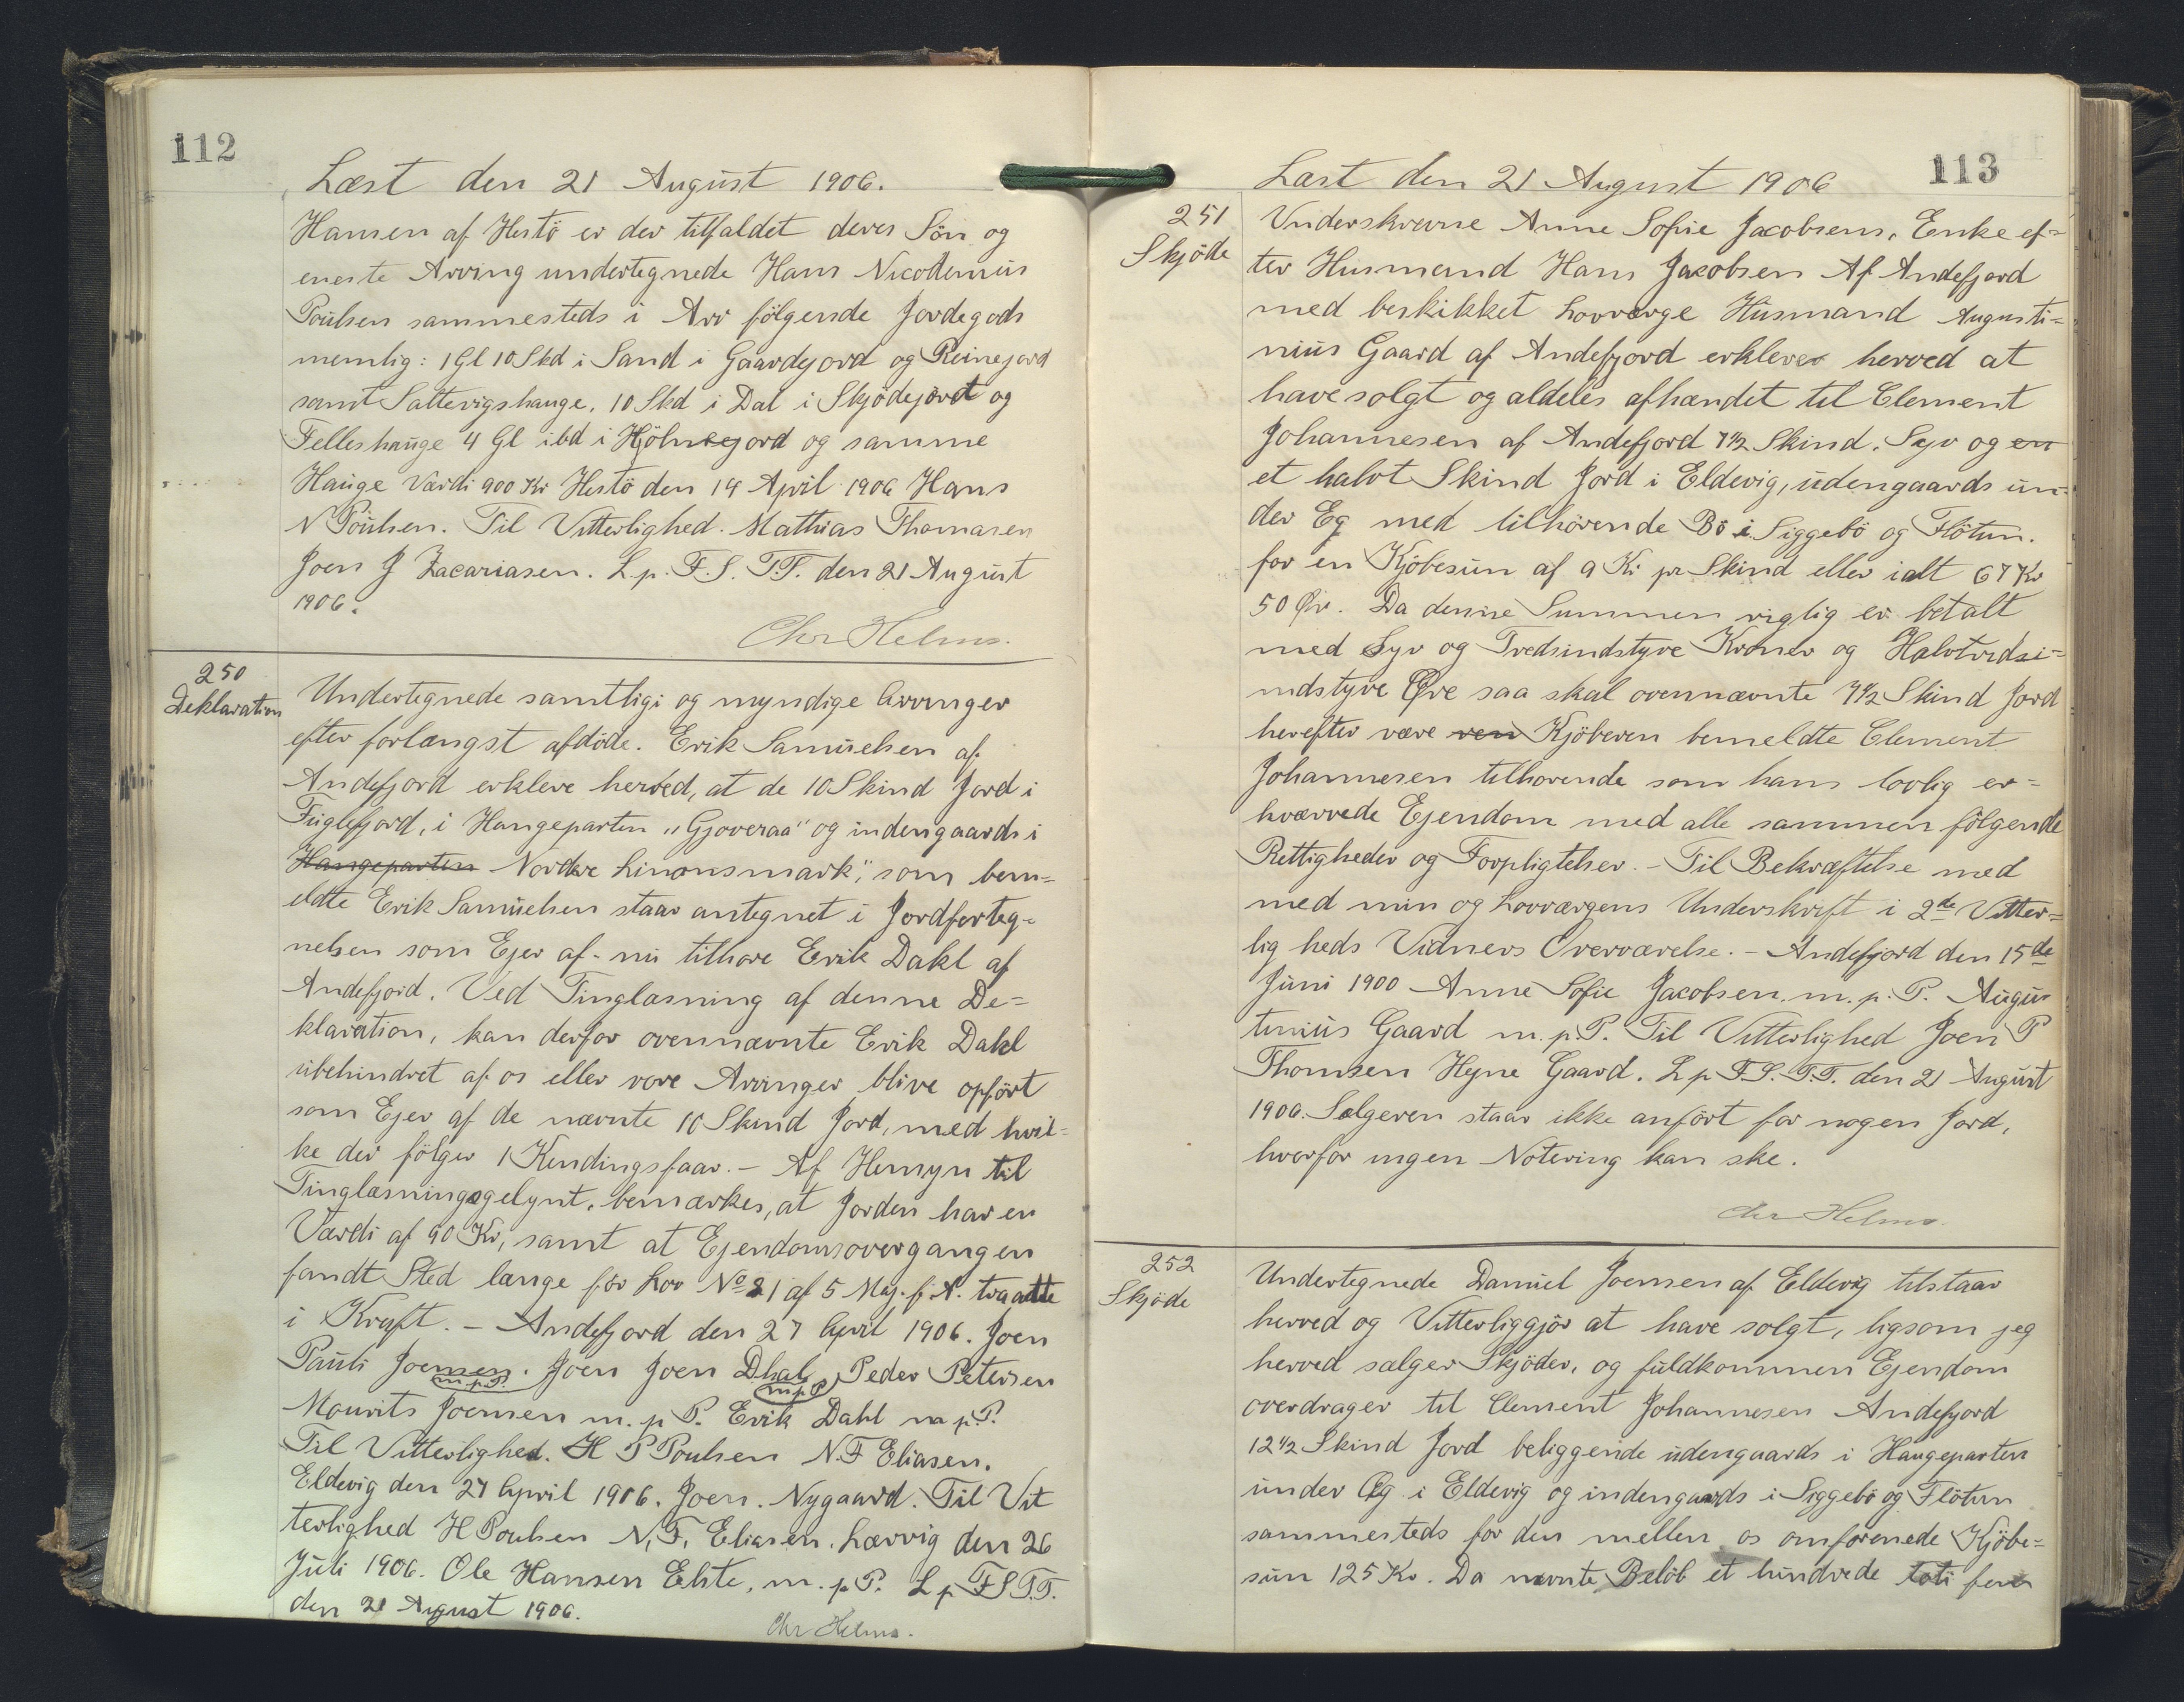 112
Læst den 21 August 1906.
Hansen af Hestö er der tilfaldet deres Sön og
eneste Arving undertegnede Hans Nicodemus
Poulsen sammesteds i Arv fölgende Jordegods
nemlig: 1 Gl 10 Skd i Sand i Gaardejord og Reinejord
samt Saltevigshauge, 10 Skd i Dal i Skjödejord og
Felleshauge 4 Gl ibd i og samme
Hauge Værdi 900 Kr Hestö den 14 April 1906 Hans
N Poulsen. Til Vitterlighed. Mathias Thomasen
Joen J Zacariasen. L. p. F. S. T.T. den 21 August
1906.
Chr Helms.
250
Deklaration
Undertegnede samtligi og myndige Arvinger
efter forlængst afdöde. Erik Samuelsen af
Andefjord erklere herved, at de 10 Skind Jord i
Fuglefjord, i Haugeparten "Gjoveraa" og indengaards i
Haugeparten Nordre Linonsmark", som bem=
eldte Erik Samuelsen staar antegnet i Jordforteg=
nelsen som Ejer af - nu tilhore Erik Dakl af
Andefjord. Ved Tinglæsning af denne De=
klaration, kan derfor ovennævnte Erik Dakl
ubehindret af os eller vore Arvinger blive opfört
som Ejer af de nævnte 10 Skind Jord, med hvil=
ke der fölger 1 Kendingsfaar. - Af Hensyn til
Tinglæsningsgelynt, bemærkes, at Jorden har en
Værdi af 90 Kr, samt at Ejendomsovergangen
fandt Sted længe för Lov No 81 af 5 Maj. f. A. traatte
i Kraft. - Andefjord den 27 April 1906. Joen
Pauli Joensen. Joen Joen Dhal, Peder Petersen
m.p.P. m.p.P
Mourits Joensen m. p P. Erik Dahl m p.P.
Til Vitterlighed. H P Poulsen N.F Eliasen.
Eldevig den 27 April 1906. Joen. Nygaard. Til Vit
terlighed H Poulsen N. F. Eliasen. Lærvig den 26
Juli 1906. Ole Hansen Elste, m. p P. L p F S T.T.
den 21 August 1906.
Chr Helms.
113
Læst den 21 August 1906
251
Skjöde
Underskrevne Anne Sofie Jacobsens, Enke ef=
ter Husmand Hans Jacobsen Af Andefjord
med beskikket Lovverge Husmand Augusti=
nius Gaard af Andefjord erklerer herved at
have solgt og aldeles afhændet til Clement
Johannesen af Andefjord 7 1/2 Skind. Syv og en
et halvt Skind Jord i Eldevig, udengaards un=
der Eg med tilhörende Bö i Siggebö og Flötun.
for en Kjöbesum af 9 Kr pr Skind eller ialt 67 Kr
50 Ør. Da denne Summen rigtig er betalt
med Syv og Tredsindstyve Kroner og Halvtredsi=
ndstyve Øre saa skal ovennævnte 7 1/2 Skind Jord
herefter være ven Kjöberen bemeldte Clement
Johannesen tilhorende som hans lovlig er=
hværvede Ejendom med alle sammen fölgende
Rettigheder og Forpligtelser. - Til Bekræftelse med
med min og Lovværgens Underskrift i 2de Vitter=
lig heds Vidners Overværelse. - Andefjord den 15de
Juni 1900 Anne Sofie Jacobsen. m. p. P. Augus
tinius Gaard m. p. P. Til Vitterlighed Joen P
Thomsen Hejne Gaard. L p F.S. T.T. den 21 August
1906. Sælgeren staar ikke anfört for nogen Jord,
hvorfor ingen Notering kan ske.
Chr Helms.
252
Skjöde
Undertegnede Daniel Joensen af Eldevig tilstaar
herved og Vitterliggjör at have solgt, ligsom jeg
herved sælger Skjöder, og fuldkommen Ejendom
overdrager til Clement Johannesen Andefjord
12 1/2 Skind Jord beliggende udengaards i Haugeparten
under Eg i Eldevig og indengaards i Siggebö og Flötun
sammesteds for den mellem os omforenede Kjöbe=
sum 125 Kr. Da nævnte Belöb et hundrede